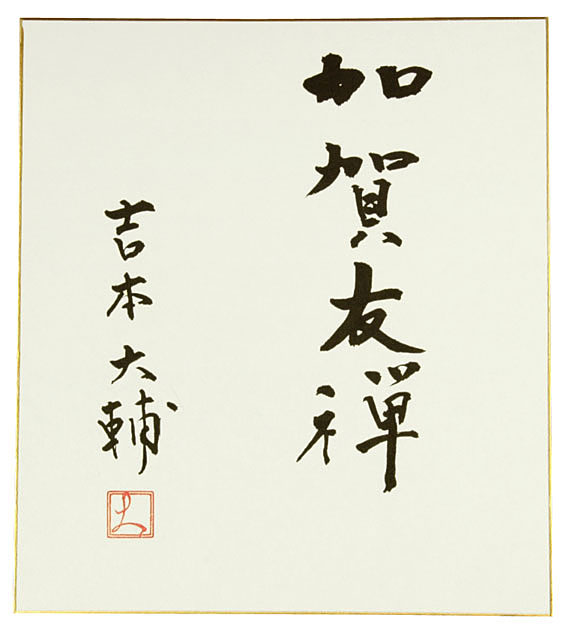 加賀友禅
吉本大輔